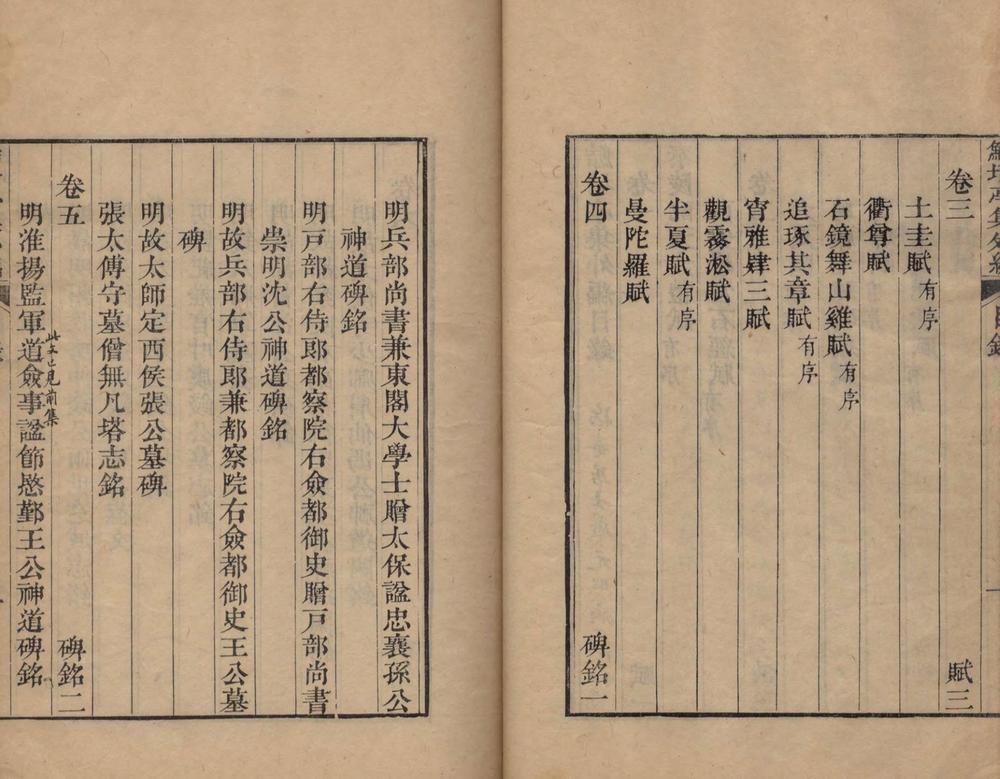 鮚埼亭集外編
目錄
一
卷三 賦三
土圭賦有序
衢尊賦
石鏡舞山雞賦有序
追琢其章賦有序
宵雅肄三賦
觀霧淞賦
半夏賦有序
曼陀羅賦
卷四 碑銘一
明兵部尚書兼東閣大學士贈太保諡忠襄孫公
神道碑銘
明戶部右侍郎都察院右僉都御史贈戶部尚書
崇明沈公神道碑銘
明故兵部右侍郎兼都察院右僉都御史王公墓
碑
明故太師定西侯張公墓碑
張太傅守墓僧無凡塔志銘
卷五 碑銘二
明淮揚監軍道僉事諡節愍鄞王公神道碑銘
此文已見前集